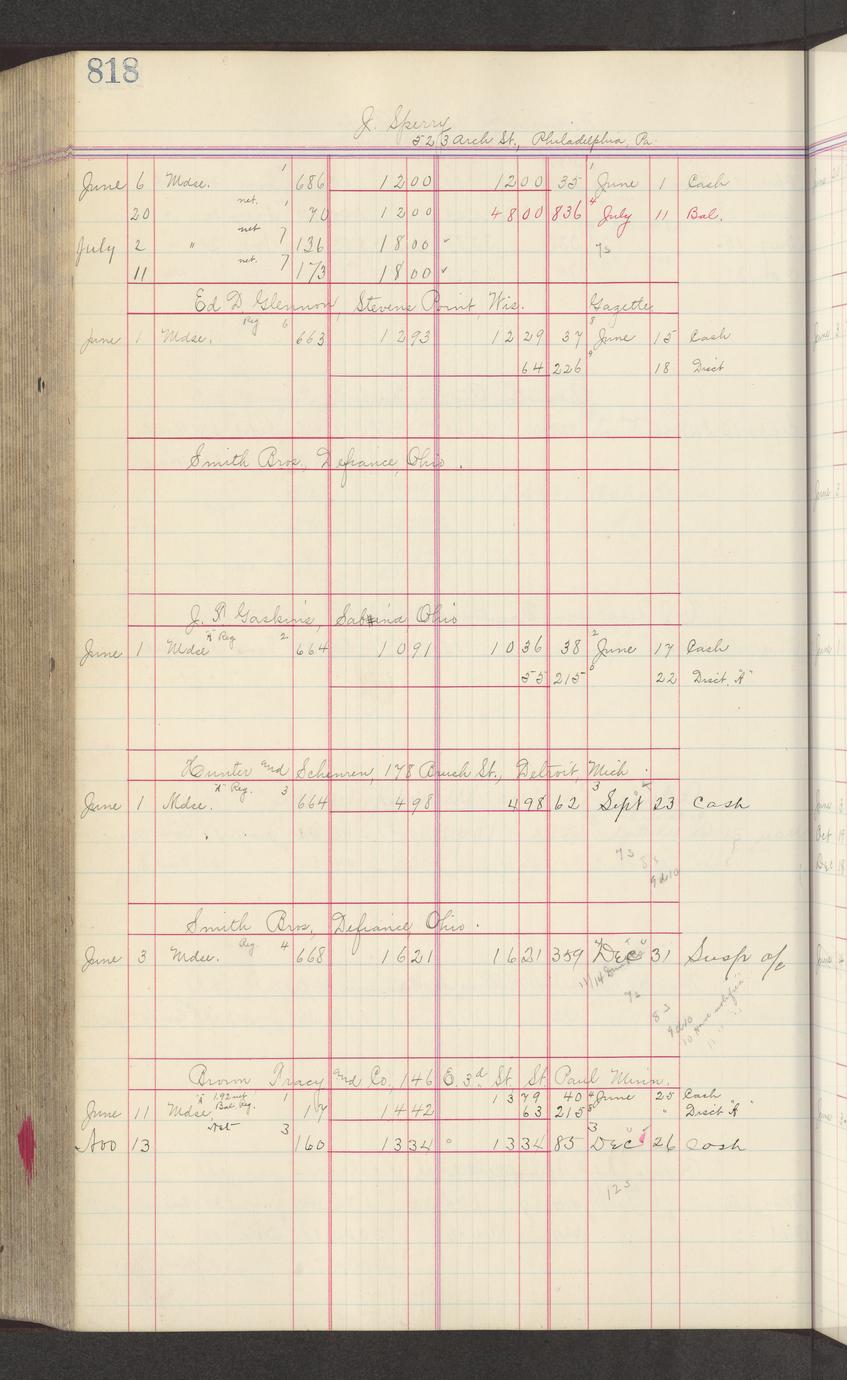 818
J. Sperry
523 Arch St., Philadelphia, Pa.
June 6 Mdse. 1 686 1200 1200 35 1 June 1 Cash
20 net. 1 70 1200 4800 836 4 July 11 Bal.
July 2 " net 7 136 1800 ✓ 7s
11 net. 7 173 1800 ✓
Ed D Glennon, Stevens Point, Wis. Gazette
June 1 Mdse. Reg 6 663 1293 1229 37 8 June 15 Cash
64 226 9 18 Disct
Smith Bros., Defiance, Ohio.
J. R. Gaskins, Sabina Ohio
June 1 Mdse "A" Reg 2 664 1091 1036 38 2 June 17 Cash
55 215 6 22 Disct. "A"
Hunter and 178 St., Detroit, Mich.
June 1 Mdse. "A" Reg. 3 664 498 498 62 3 Sept 23 Cash
7s
8s
9d10
Smith Bros, Defiance Ohio.
June 3 Mdse. Reg. 4 668 1621 1621 359 4 Dec 31 Susp a/c
11/14
7s
8s
9d10
10 Have notified
11 " "
Brown Tracy and Co, 146 E. 3d St. St. Paul Minn.
June 11 Mdse, "A" 1.92 net Bal. Reg. 1 17 1442 1379 40 4 June 25 Cash
63 215 " Disct "A"
Nov 13 Net 3 160 1334 1334 85 3 Dec 26 Cash
12s